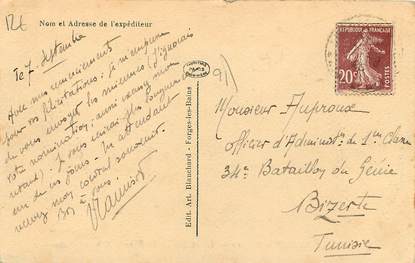 Nom et Adresse de l'expéditeur
le 7 Septembre
Avec mes remerciements
pour vos félicitations, je m'empresse
de vous envoyer les miennes (j'ignorais
votre nomination, aussi excusez mon
retard). Je vous écrirai plus longue-
ment un de ces jours. En attendant
recevez mon cordial souvenir.
Bien à vous.
Edit. Art. Blanchard - Forges-les-Bains
91
REPUBLIQUE FRANÇAISE
20c
POSTES
Monsieur Auproux
Officier d'Administ on de 1re Classe
34e Bataillon du Génie
Bizerte
Tunisie